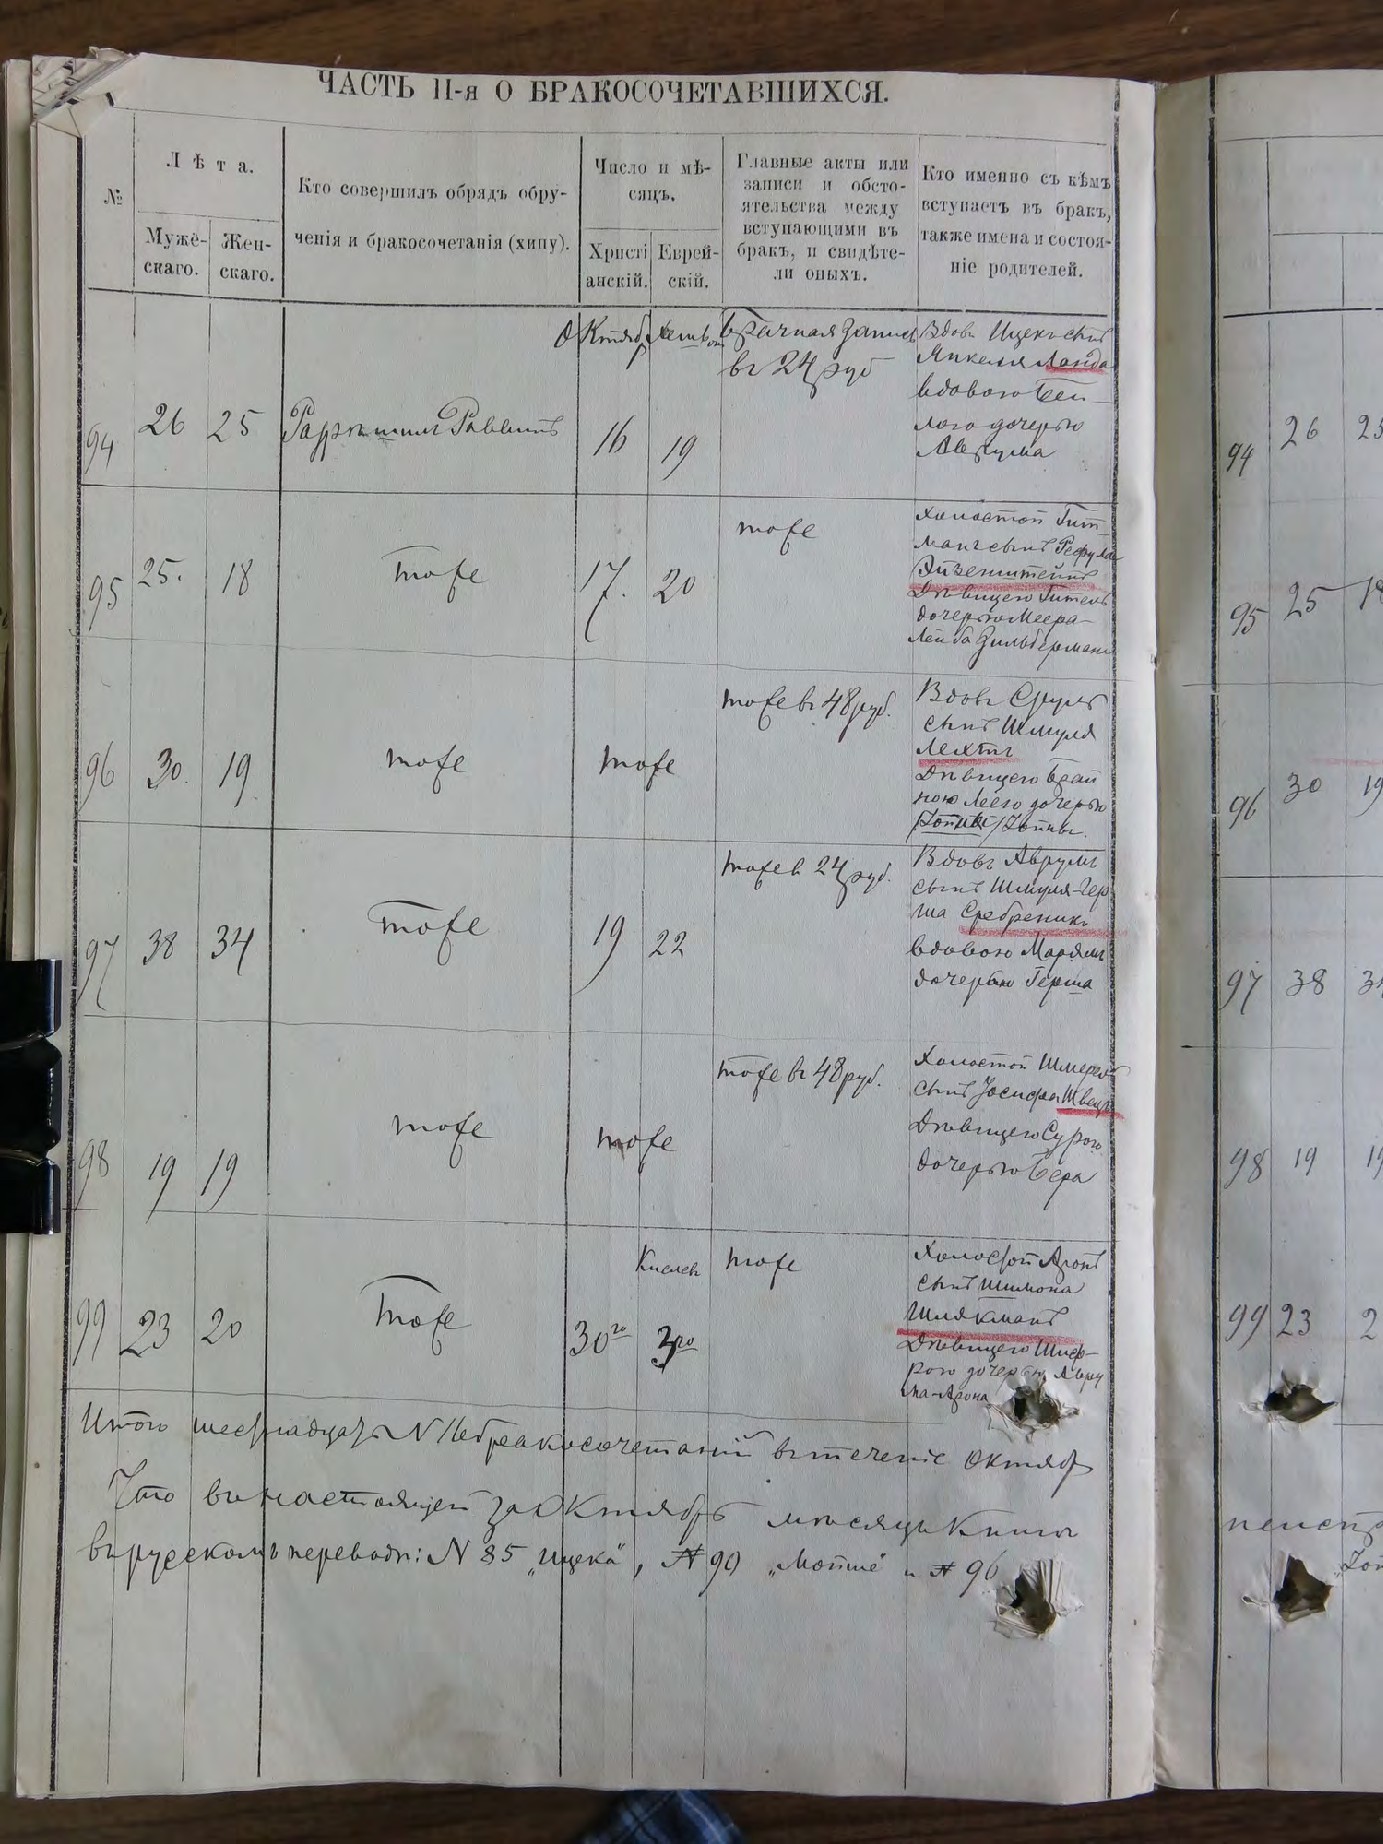 ЧАСТЬ II-я О БРАКОСОЧЕТАВШИХСЯ.
№
Лѣта.
Мужс-
скаго.
Жен-
скаго.
Кто совершилъ обрядъ обру-
ченія и бракосочетанія (хипу).
Число и мѣ-
сяцъ.
Христі
анскій.
Еврей-
скій.
Главные акты или
записи и обсто-
ятельства между
вступающими въ
бракъ, и свидѣте-
ли оныхъ.
Кто именно съ кѣмъ
вступаетъ въ бракъ,
также имена и состоя-
ніе родителей.
94
26
25
Раввинъ
Октяб
16
19
брачная запись
въ 24 руб
Вдовъ Ицекъ сынъ
Янкеля Ланда
вдовою Бей
лою дочерью
95
25.
18
тоже
17.
20
тоже
Холостой Гит
манъ сынъ
Айзенштейнъ
Дѣвицею Гитель
дочерью Меера-
Лейба Зильберманъ
96
30.
19
тоже
тоже
тоже въ 48 руб.
Вдовъ Сруль
сынъ Шмуля
Лехтъ
Дѣвицею
дочерью
97
38
34
тоже
19
22
тоже въ 24 руб.
Вдовъ Аврумъ
сынъ Шмуля-Гер
ша Сребреникъ
вдовою Марьямъ
дочерью Герша
98
19
19
тоже
тоже
тоже въ 48 руб.
Холостой Шмерель
сынъ Іосифа Швецъ
Дѣвицею Сурою
дочерью Бера
99
23
20
тоже
30го
Кислев
3го
тоже
Холостой Аронъ
сынъ Шимона
Шлякманъ
Дѣвицею Шиф-
рою дочерью Авру
ма-Арона
Итого шестнадцать N 16 бракосочетаній въ теченіе Октяб
Что въ настоящей за Октябрь мѣсяцъ Книги
въ русскомъ переводѣ: N 85 „Ицека“, N 90 „Мотше“ и N 96
94
26
25
95
25
18
96
30
19
97
38
98
19
19
99
23
2